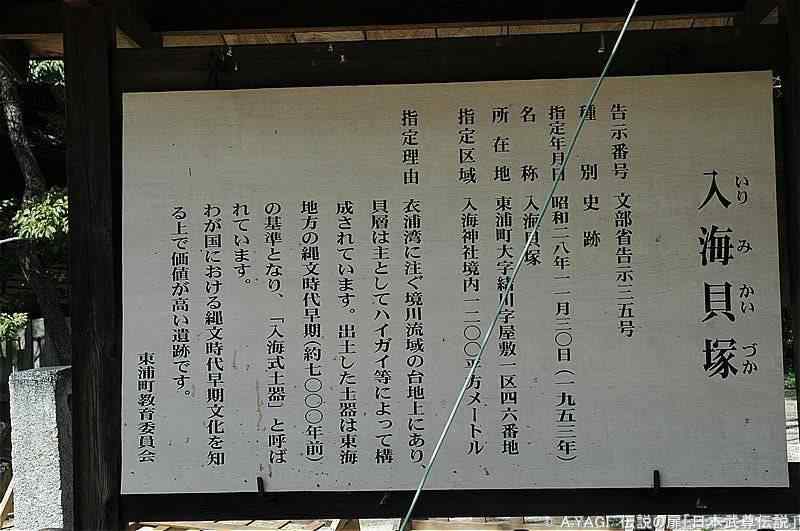 入海貝塚
いりみかいづか
告示番号 文部省告示三五号
種別 史跡
指定年月日 昭和二八年一一月三〇日（一九五三年）
名称 入海貝塚
所在地 東浦町大字緒川字屋敷一区四六番地
指定区域 入海神社境内一二〇〇平方メートル
指定理由 衣浦湾に注ぐ境川流域の台地上にあり、
貝層は主としてハイガイ等によって構
成されています。出土した土器は東海
地方の縄文時代早期（約七〇〇〇年前）
の基準となり、「入海式土器」と呼ば
れています。
わが国における縄文時代早期文化を知
る上で価値が高い遺跡です。
東浦町教育委員会
© A.YAGI 伝説の扉「日本武尊伝説」